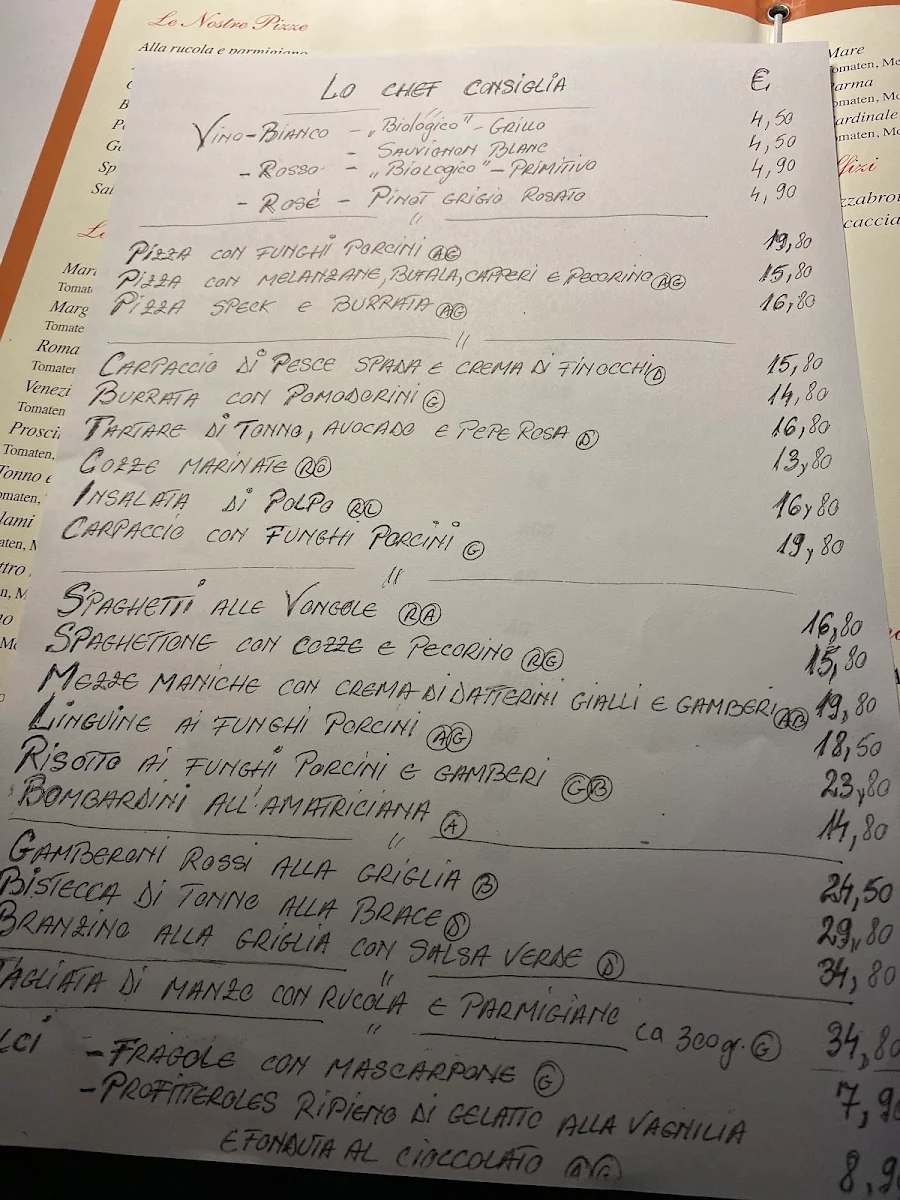 Le Nostre Pizze
Alla rucola e parmigiano
LO CHEF CONSIGLIA €
VINO-BIANCO - „BIOLOGICO" - GRILLO 4,50
- SAUVIGNON BLANC 4,50
- ROSSO - „BIOLOGICO" - PRIMITIVO 4,90
- ROSÉ - PINOT GRIGIO ROSATO 4,90
PIZZA CON FUNGHI PORCINI (AG) 19,80
PIZZA CON MELANZANE, BUFALA, CAPPERI E PECORINO (AG) 15,80
PIZZA SPECK E BURRATA (AG) 16,80
CARPACCIO DI PESCE SPADA E CREMA DI FINOCCHI (D) 15,80
BURRATA CON POMODORINI (G) 14,80
TARTARE DI TONNO, AVOCADO E PEPE ROSA (D) 16,80
COZZE MARINATE 13,80
INSALATA DI POLPO (RL) 16,80
CARPACCIO CON FUNGHI PORCINI (G) 19,80
SPAGHETTI ALLE VONGOLE (RA) 16,80
SPAGHETTONE CON COZZE E PECORINO (RG) 15,80
MEZZE MANICHE CON CREMA DI DATTERINI GIALLI E GAMBERI (AB) 19,80
LINGUINE AI FUNGHI PORCINI (AG) 18,50
RISOTTO AI FUNGHI PORCINI E GAMBERI (GB) 23,80
BOMBARDINI ALL'AMATRICIANA (A) 14,80
GAMBERONI ROSSI ALLA GRIGLIA (B) 24,50
BISTECCA DI TONNO ALLA BRACE (D) 29,80
BRANZINO ALLA GRIGLIA CON SALSA VERDE (D) 34,80
TAGLIATA DI MANZO CON RUCOLA E PARMIGIANO ca 300gr. (G) 34,80
LCI - FRAGOLE CON MASCARPONE (G) 7,9
- PROFITTEROLES RIPIENO DI GELATO ALLA VAGNILIA
E FONDUTA AL CIOCCOLATO (AG) 8,9
Marg
Tomate
Roma
Tomaten
Venezi
Tomaten
Prosci
Tomaten,
Tonno e
Mare
omaten, Mo
arma
omaten, Mo
ardinale
maten, Mo
ffizi
zzabro
caccia